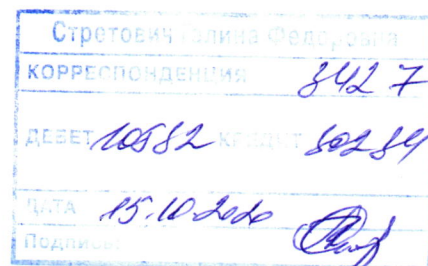 Стретович Галина Федоровна
КОРРЕСПОНДЕНЦИЯ 3427
ДЕБЕТ 10532 КРЕДИТ 30234
ДАТА 15.10.2020
Подпись: